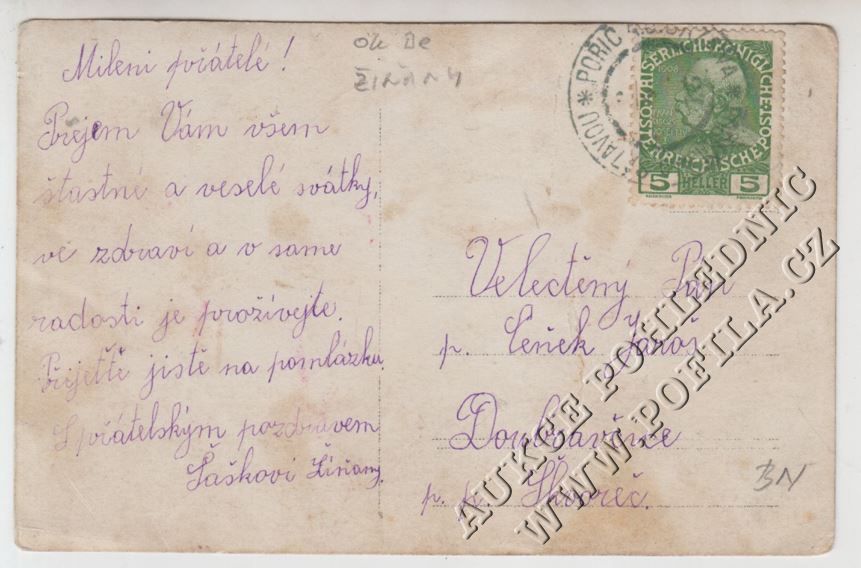 Mileni přátelé!
Přejem Vám všem
šťastné a veselé svátky,
ve zdraví a v same
radosti je prožívejte.
Přijeďte jistě na pomlázku.
S přátelským pozdravem
Saškovi Žiňany.
Okr Be
ŽIŇANY
PORIC
SÁZAVOU
KAISERLICHE KÖNIGLICHE
OSTERREICHISCHE POST
1908
5 HELLER 5
Velectěný Pán
p. Čeněk Jaroš
Doubravčice
p. p. Škvorec.
BN
AUKCE POHLEDNIC
WWW.POFILA.CZ